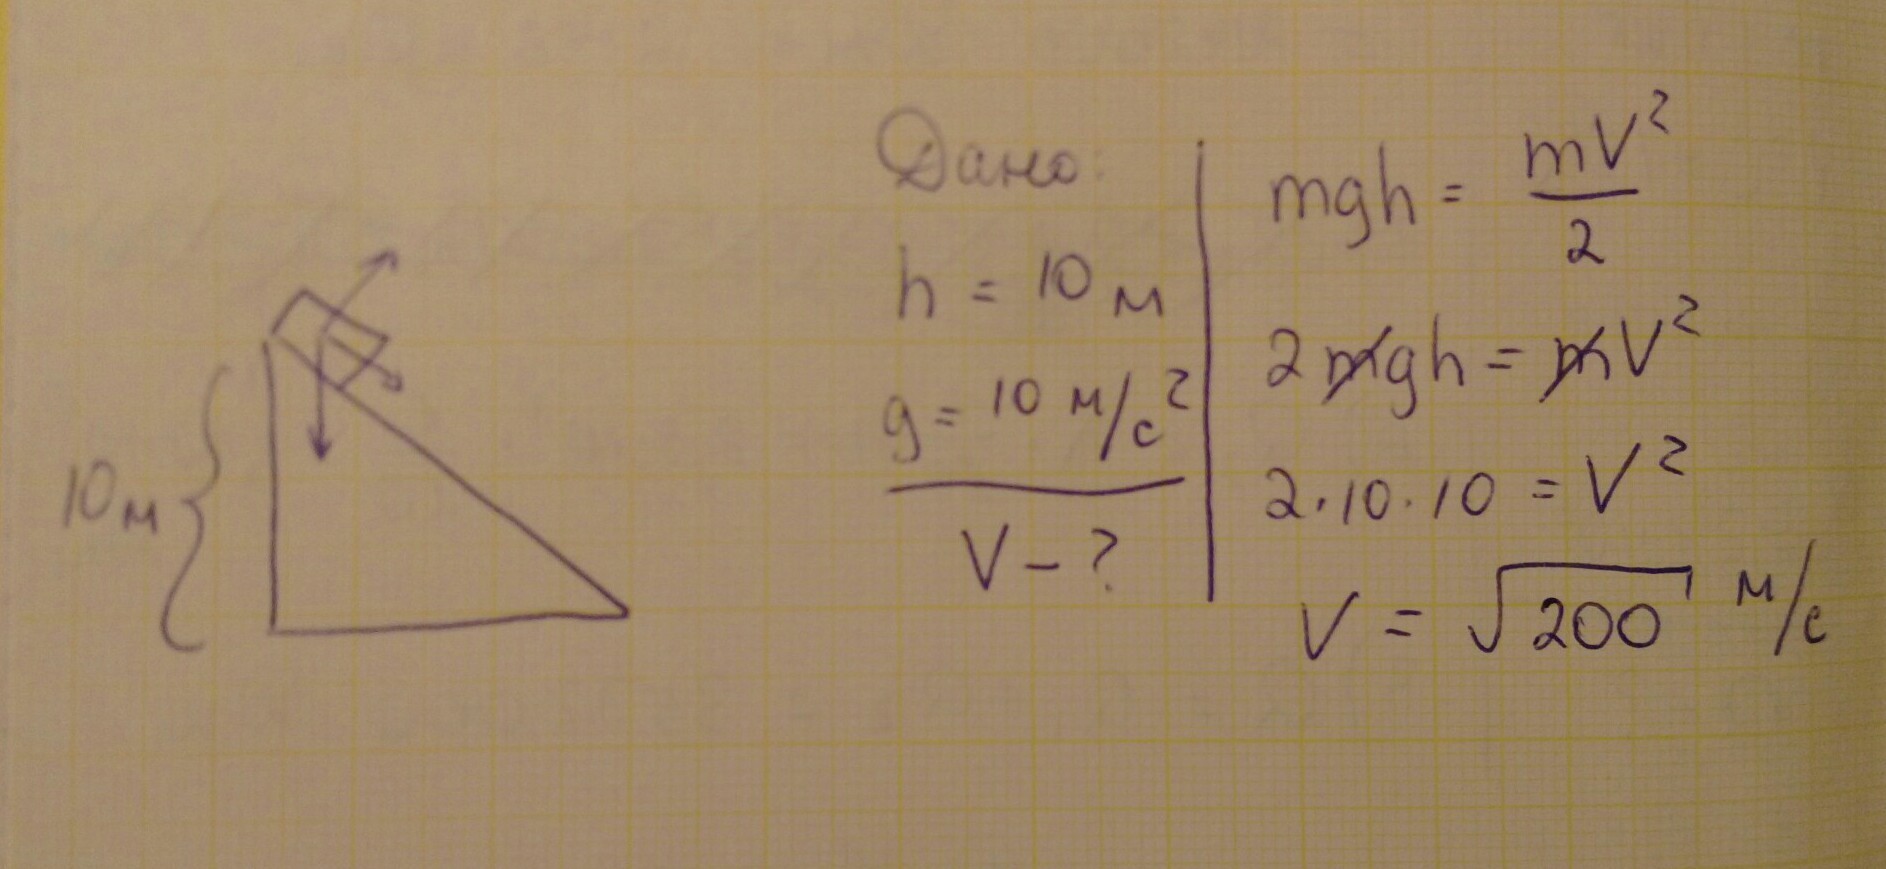 10м
Дано:
h = 10 м
g = 10 м/с²
V - ?
mgh = mV²/2
2mgh = mV²
2·10·10 = V²
V = √200 м/с